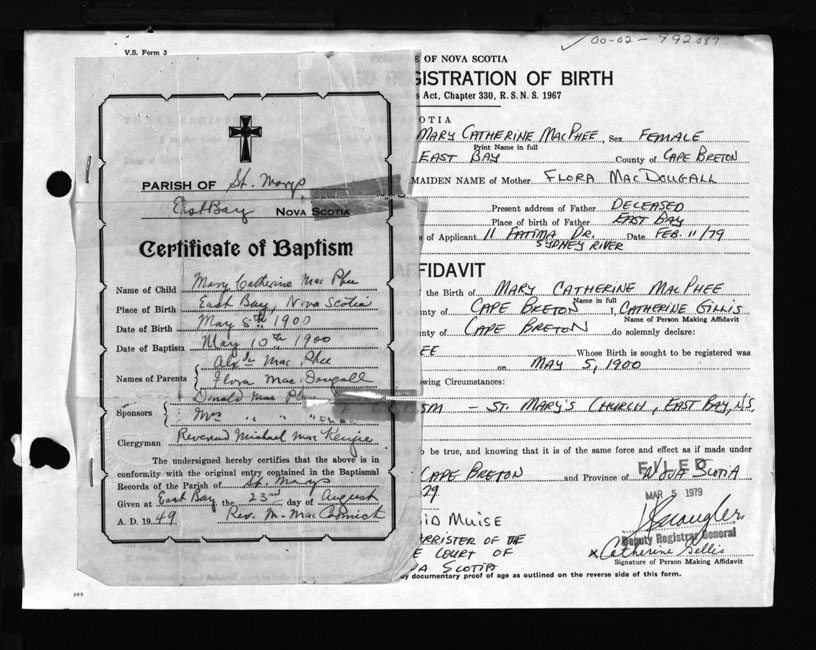 00-02-992087
V.S. Form 3
E OF NOVA SCOTIA
GISTRATION OF BIRTH
s Act, Chapter 330, R. S. N. S. 1967
OTIA
MARY CATHERINE MACPHEE, Sex FEMALE
Print Name in full
EAST BAY County of CAPE BRETON
MAIDEN NAME of Mother FLORA MACDOUGALL
Present address of Father DECEASED
Place of birth of Father EAST BAY
s of Applicant 11 FATIMA DR. Date FEB. 11/79
SYDNEY RIVER
AFFIDAVIT
the Birth of MARY CATHERINE MACPHEE
Name in full
County of CAPE BRETON I, CATHERINE GILLIS
Name of Person Making Affidavit
nty of CAPE BRETON do solemnly declare:
EE Whose Birth is sought to be registered was
on MAY 5, 1900
owing Circumstances:
ISM - ST. MARY'S CHURCH, EAST BAY, N.S.
to be true, and knowing that it is of the same force and effect as if made under
CAPE BRETON and Province of NOVA SCOTIA
FILED
29
MAR 5 1979
ID MUISE
Deputy Registrar General
ARRISTER OF THE
x Catherine Gillis
E COURT OF
Signature of Person Making Affidavit
VA SCOTIA
by documentary proof of age as outlined on the reverse side of this form.
PARISH OF St. Marys
East Bay NOVA SCOTIA
Certificate of Baptism
Name of Child Mary Catherine Mac Phee
Place of Birth East Bay, Nova Scotia
Date of Birth May 5th 1900
Date of Baptism May 10th 1900
Names of Parents { Alexdr Mac Phee
Flora Mac Dougall
Sponsors { Donald Mac Ph
Mrs " " "
Clergyman Reverend Michael Mac Kenzie
The undersigned hereby certifies that the above is in
conformity with the original entry contained in the Baptismal
Records of the Parish of St. Marys
Given at East Bay the 23rd day of August
A. D. 1949 Rev. M. MacCormick